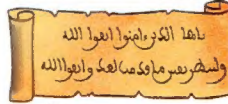 ياها الدىں امنوا اتقوا الله
ولتنطر نفس ما قدمت لغد واتقوا الله